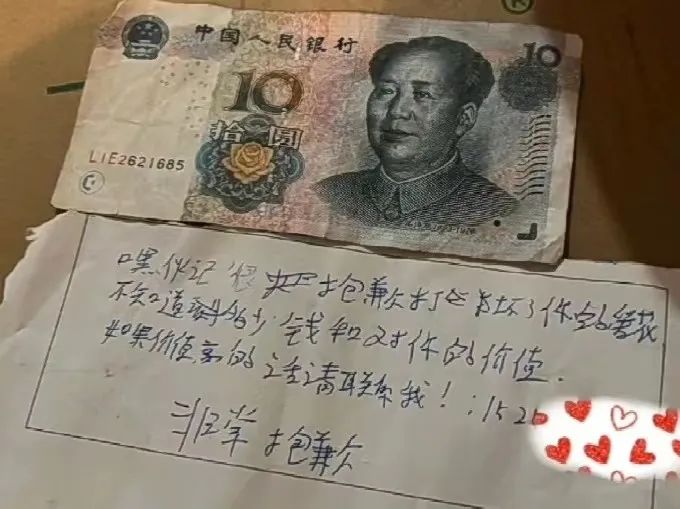 中国人民银行
10
10
拾圆
L1E2621685
嘿伙记 很 抱歉 坏了你的
不知道 多少钱和对你的价值.
如果价值高的话请联系我！: 152
非常抱歉